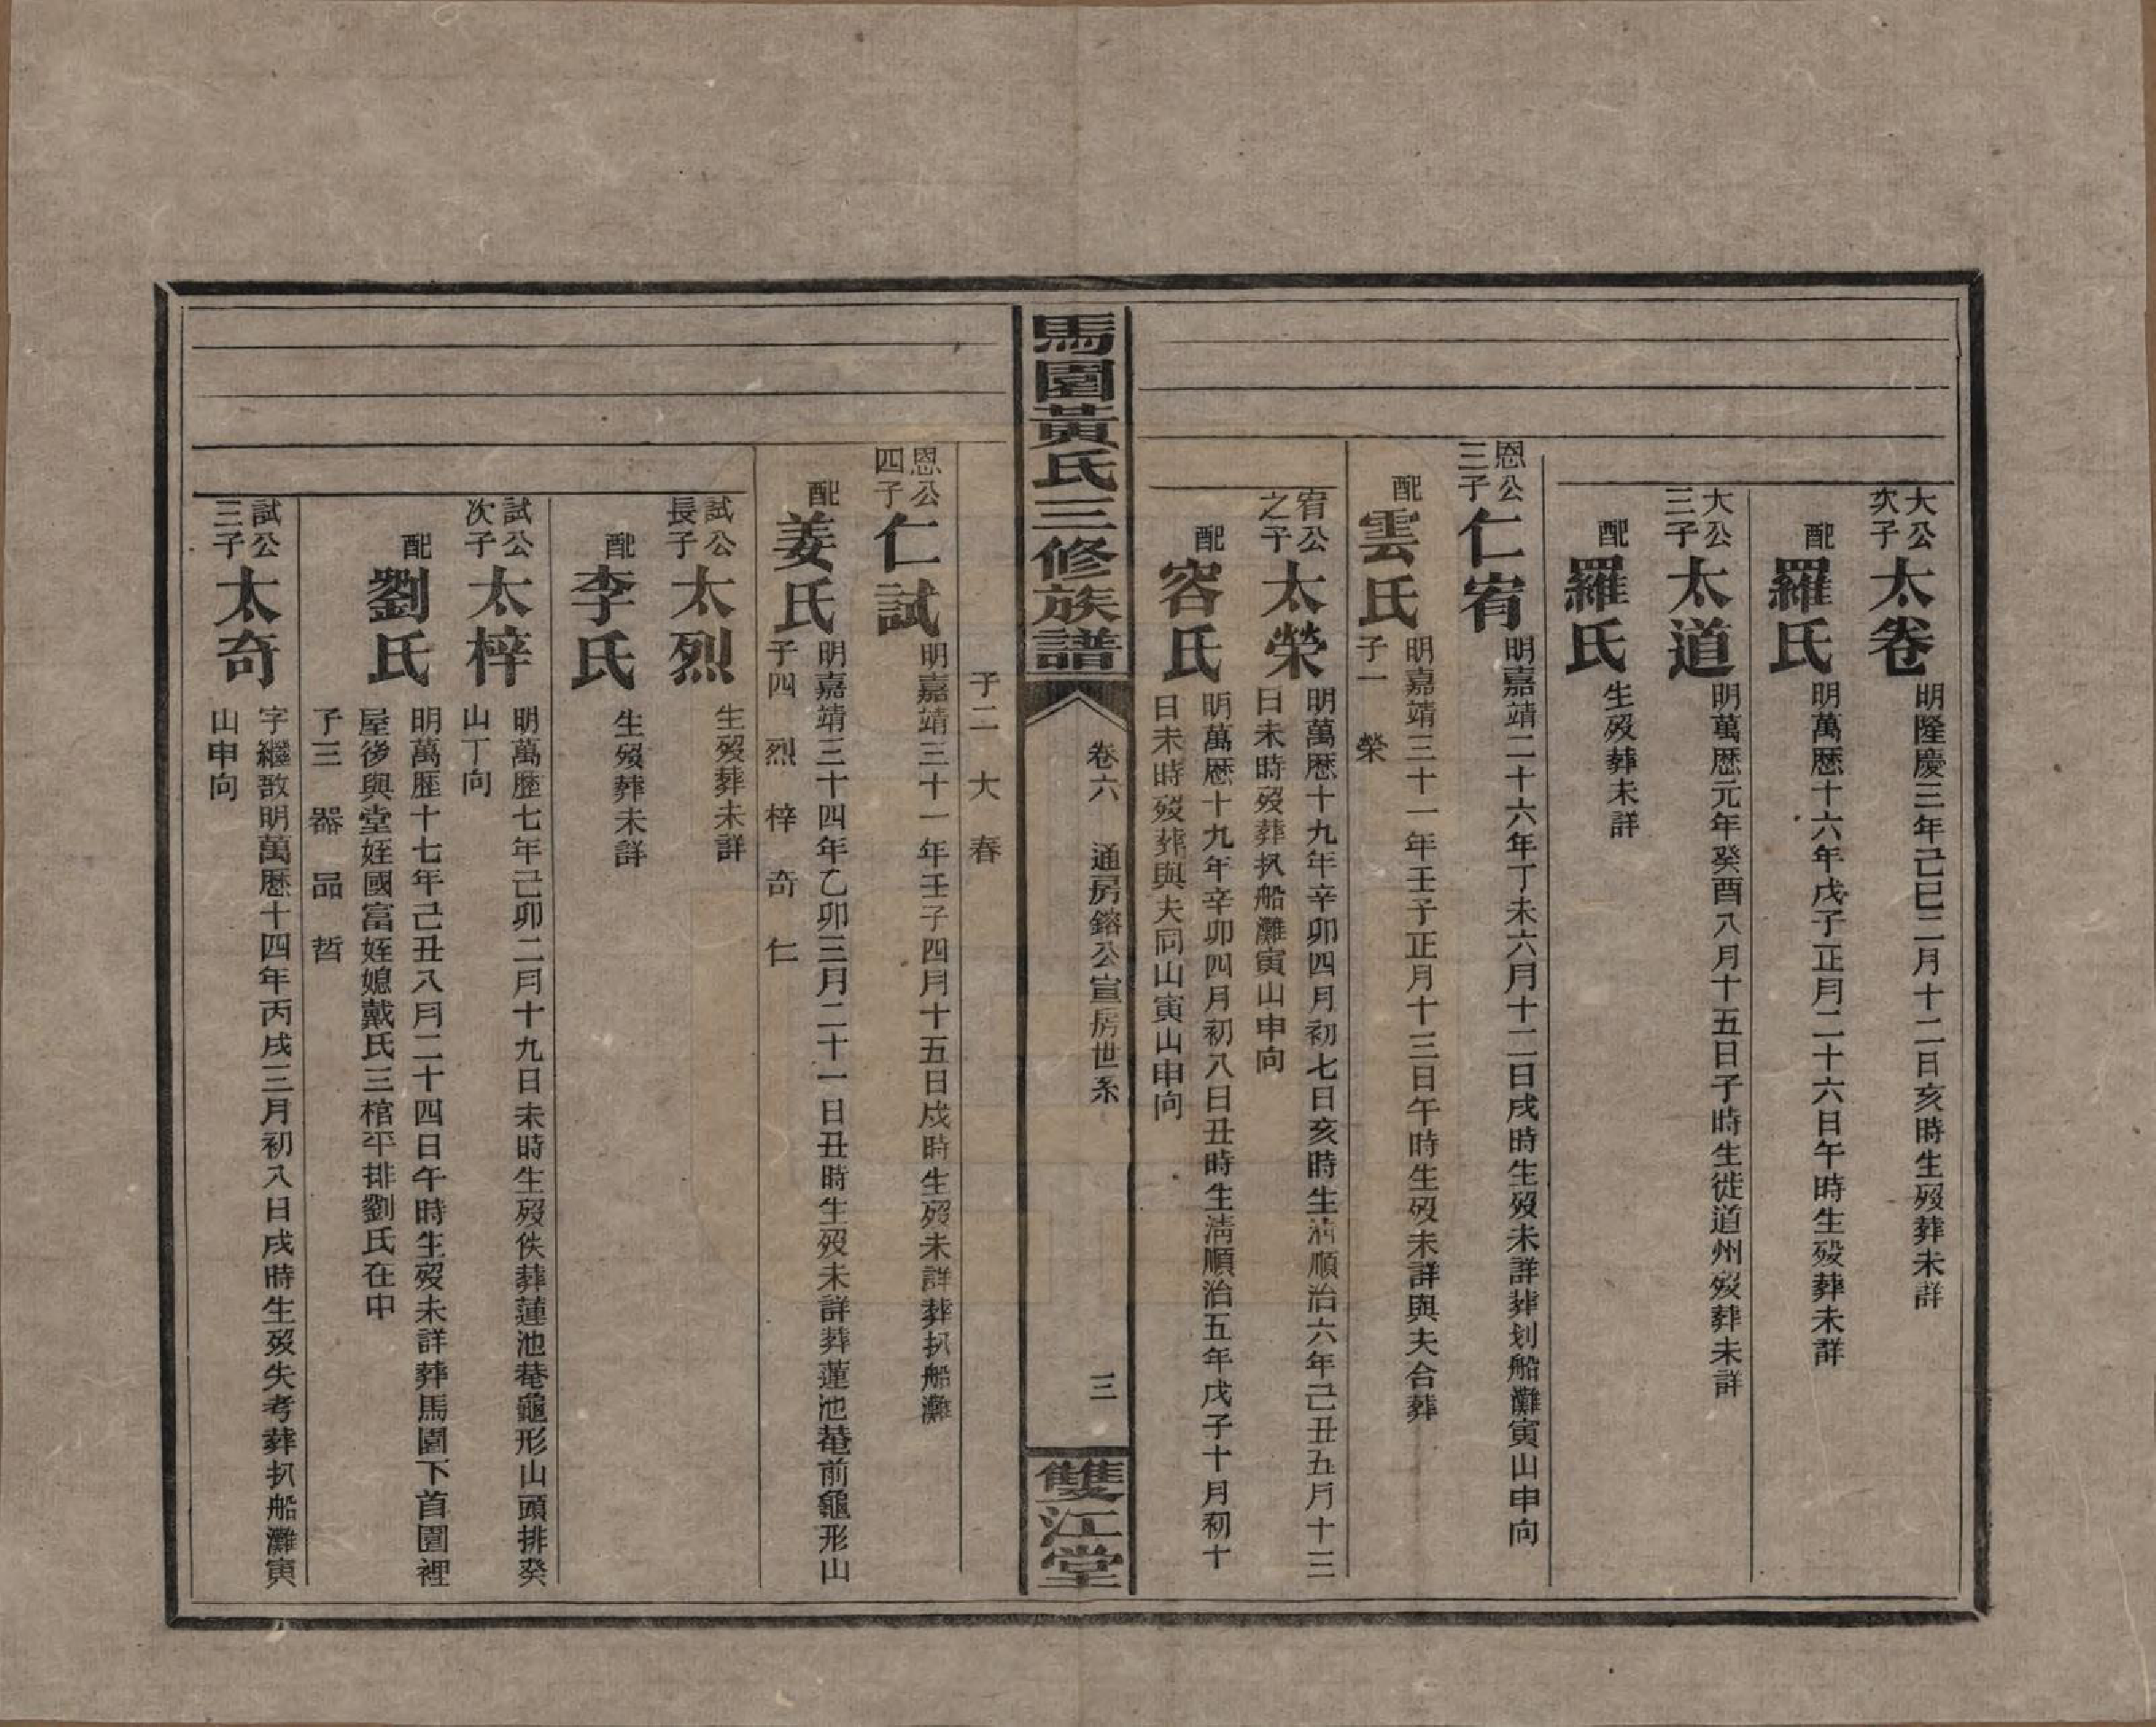 大公次子
太卷
明隆慶三年己巳二月十二日亥時生歿葬未詳
配
羅氏
明萬歷十六年戊子正月二十六日午時生歿葬未詳
大公三子
太道
明萬歷元年癸酉八月十五日子時生徙道州歿葬未詳
配
羅氏
生歿葬未詳
恩公三子
仁宥
明嘉靖二十六年丁未六月十二日戌時生歿未詳葬划船灘寅山申向
配
雲氏
明嘉靖三十一年壬子正月十三日午時生歿未詳與夫合葬
子一 榮
宥公之子
太榮
明萬歷十九年辛卯四月初七日亥時生清順治六年己丑五月十三
日未時歿葬扒船灘寅山申向
配
容氏
明萬歷十九年辛卯四月初八日丑時生淸順治五年戊子十月初十
日未時歿葬與夫同山寅山申向
馬園黃氏三修族譜
卷六 通房鎔公宣房世系
三
雙江堂
子二 大 春
恩公四子
仁試
明嘉靖三十一年壬子四月十五日戌時生歿未詳葬扒船灘
配
姜氏
明嘉靖三十四年乙卯三月二十一日丑時生歿未詳葬蓮池菴前龜形山
子四 烈 梓 奇 仁
試公長子
太烈
生歿葬未詳
配
李氏
生歿葬未詳
試公次子
太梓
明萬歷七年己卯二月十九日未時生歿佚葬蓮池菴龜形山頭排癸
山丁向
配
劉氏
明萬歷十七年己丑八月二十四日午時生歿未詳葬馬園下首園裡
屋後與堂姪國富姪媳戴氏三棺平排劉氏在中
子三 器 品 哲
試公三子
太奇
字繼敔明萬歷十四年丙戌三月初八日戌時生歿失考葬扒船灘寅
山申向